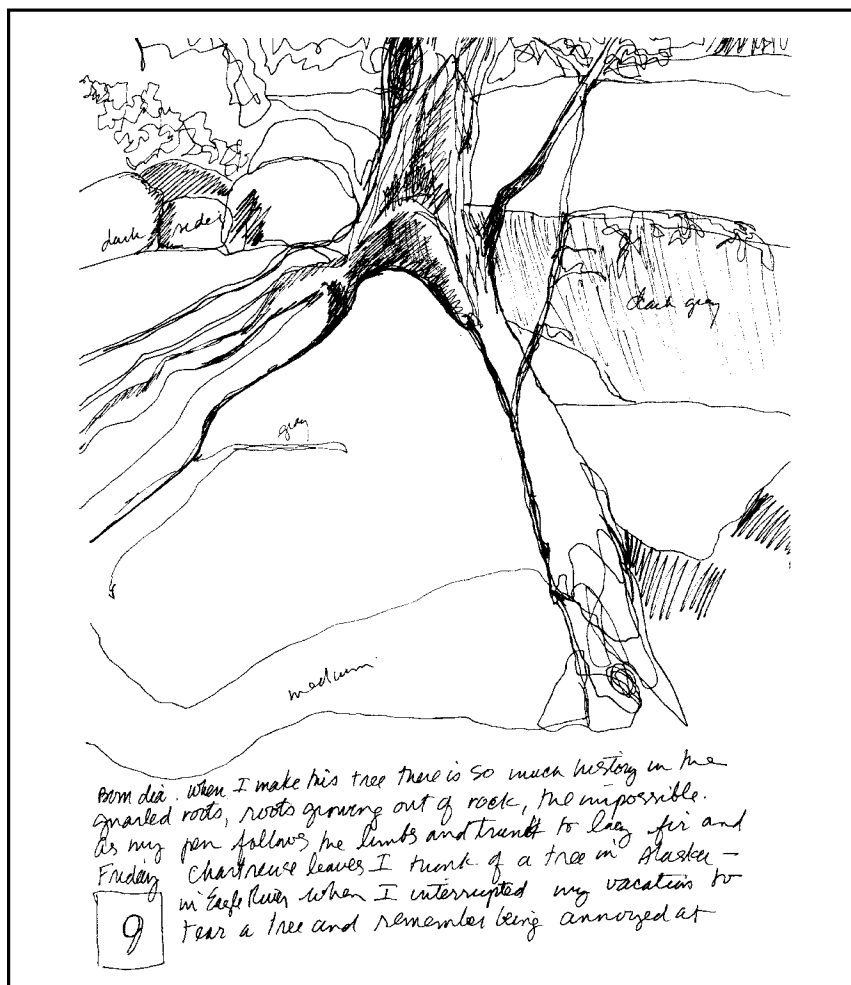 dark side
dark gray
gray
medium
Bom dia. When I make this tree there is so much history in the
gnarled roots, roots growing out of rock, the impossible.
As my pen follows the limbs and trunk to lacy fir and
Friday chartreuse leaves I think of a tree in Alaska –
in Eagle River when I interrupted my vacation to
9 tear a tree and remember being annoyed at